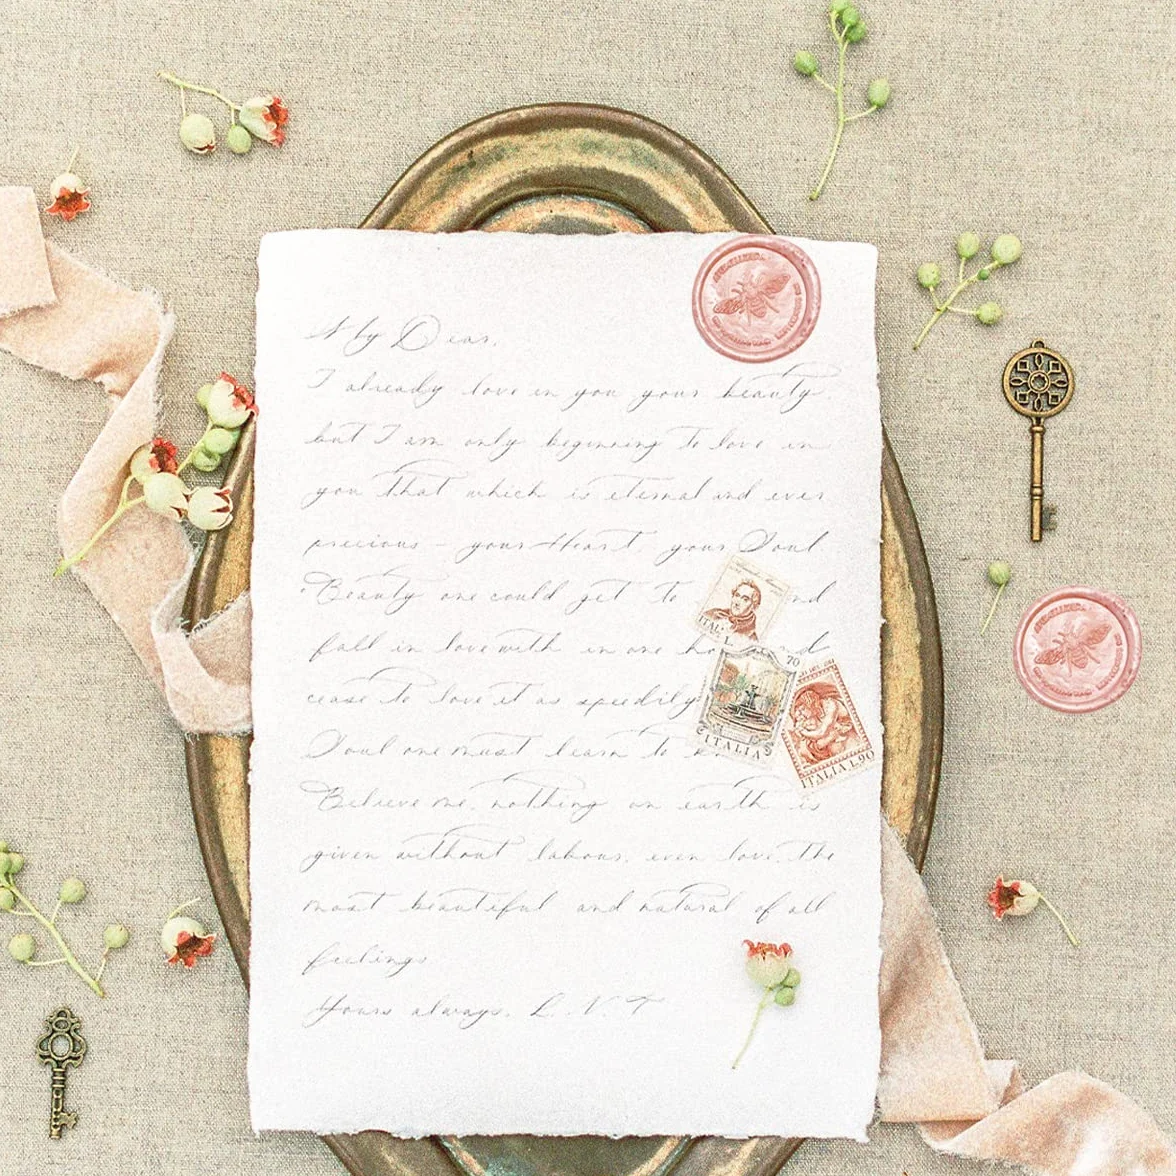 My Dear,
I already love in you your beauty,
but I am only beginning to love in
you that which is eternal and ever
precious – your Heart, your Soul
Beauty one could get to nd
fall in love with in one ho nd
cease to love it as speedily
Soul one must learn to
Believe me, nothing on earth is
given without labour, even love, the
most beautiful and natural of all
feelings
Yours always, L. N. T
ITAL L.
70
ITALIA
ITALIA L.90